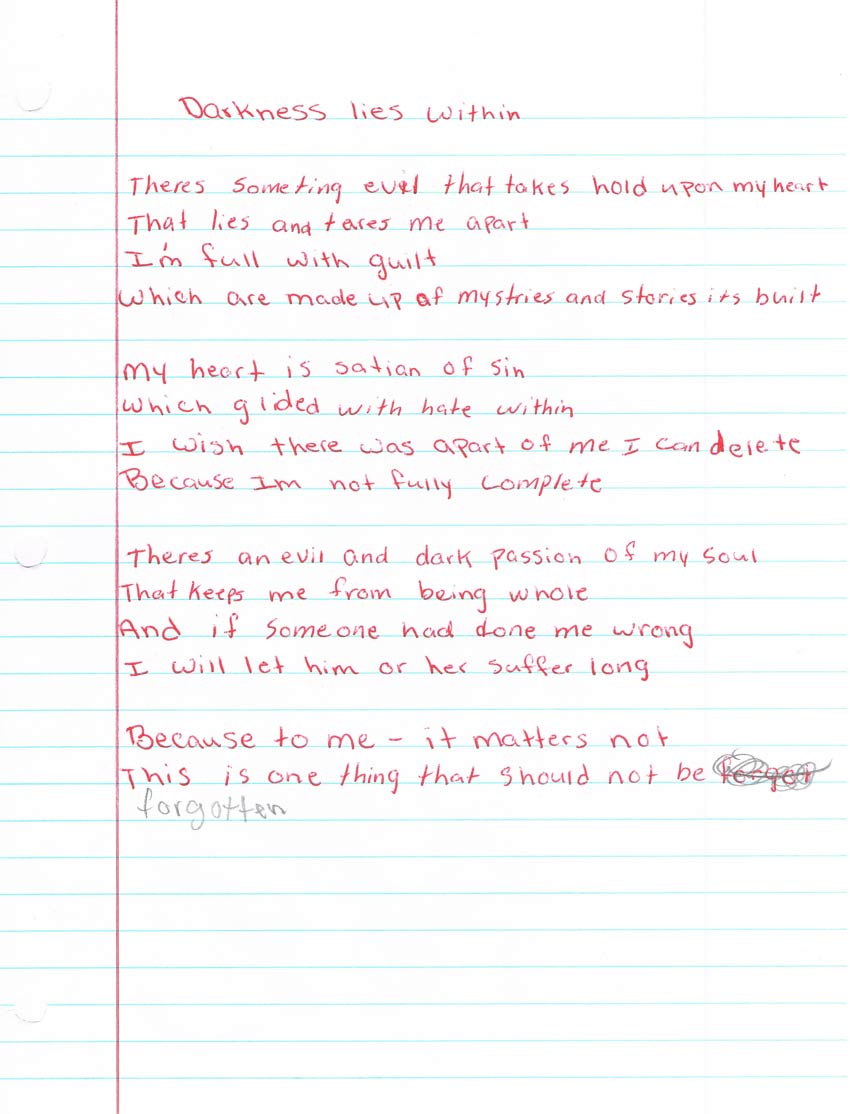 Darkness lies within
Theres someting evil that takes hold upon my heart
That lies and tares me apart
I'm full with guilt
Which are made up of mystries and stories its built
My heart is satian of sin
Which glided with hate within
I wish there was apart of me I can delete
Because Im not fully complete
Theres an evil and dark passion of my soul
That keeps me from being whole
And if someone had done me wrong
I will let him or her suffer long
Because to me - it matters not
This is one thing that should not be forgot
forgotten